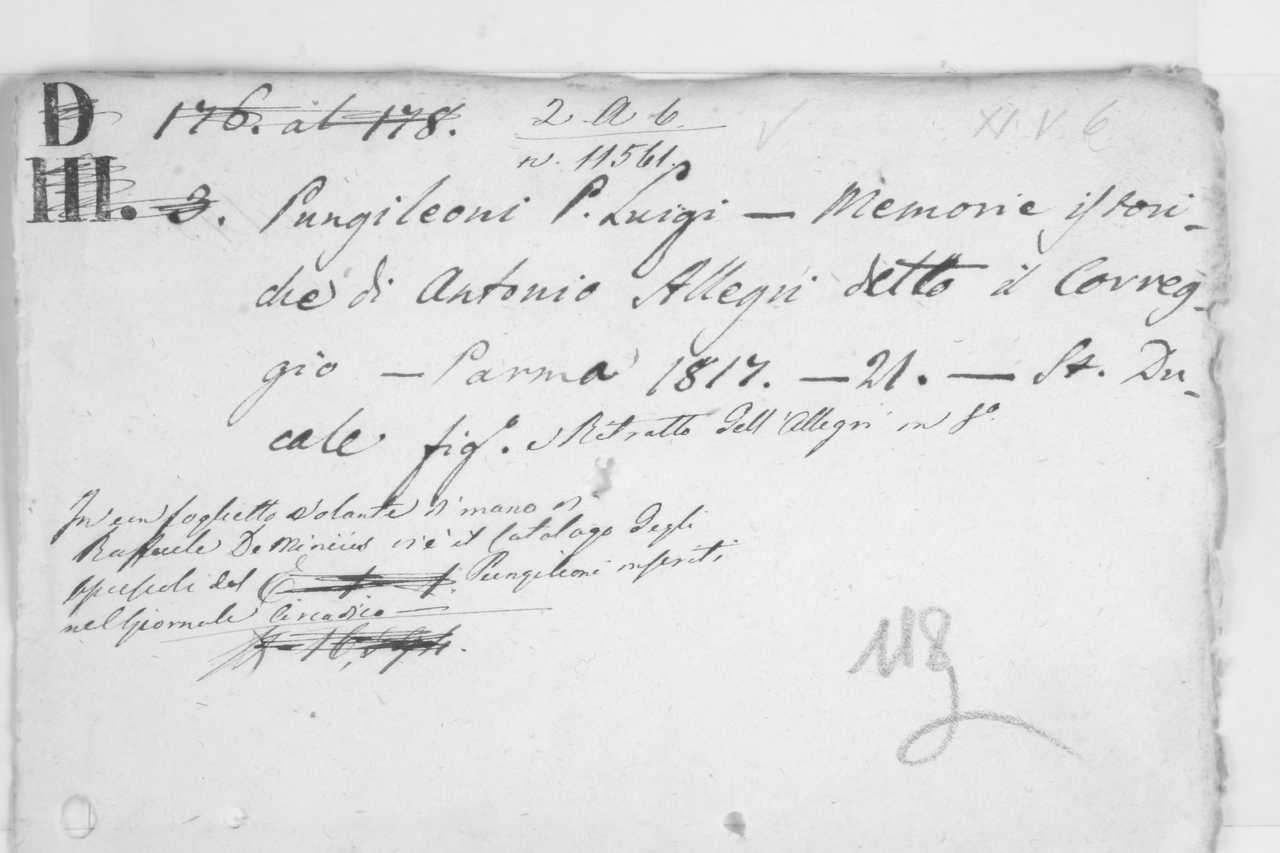 D 176. al 178. 2 A b. XI. V. 6
n. 11561.
III. 3. Pungileoni P. Luigi — Memorie istori-
che di Antonio Allegri detto il Correg-
gio — Parma 1817. — 21. — St. Du-
cale fig.º e Ritratto dell'Allegri in 8º
In un foglietto volante di mano di
Raffaele De Minicis vi è il Catalogo degli
opuscoli del Pungileoni inseriti
nel Giornale Arcadico —
118